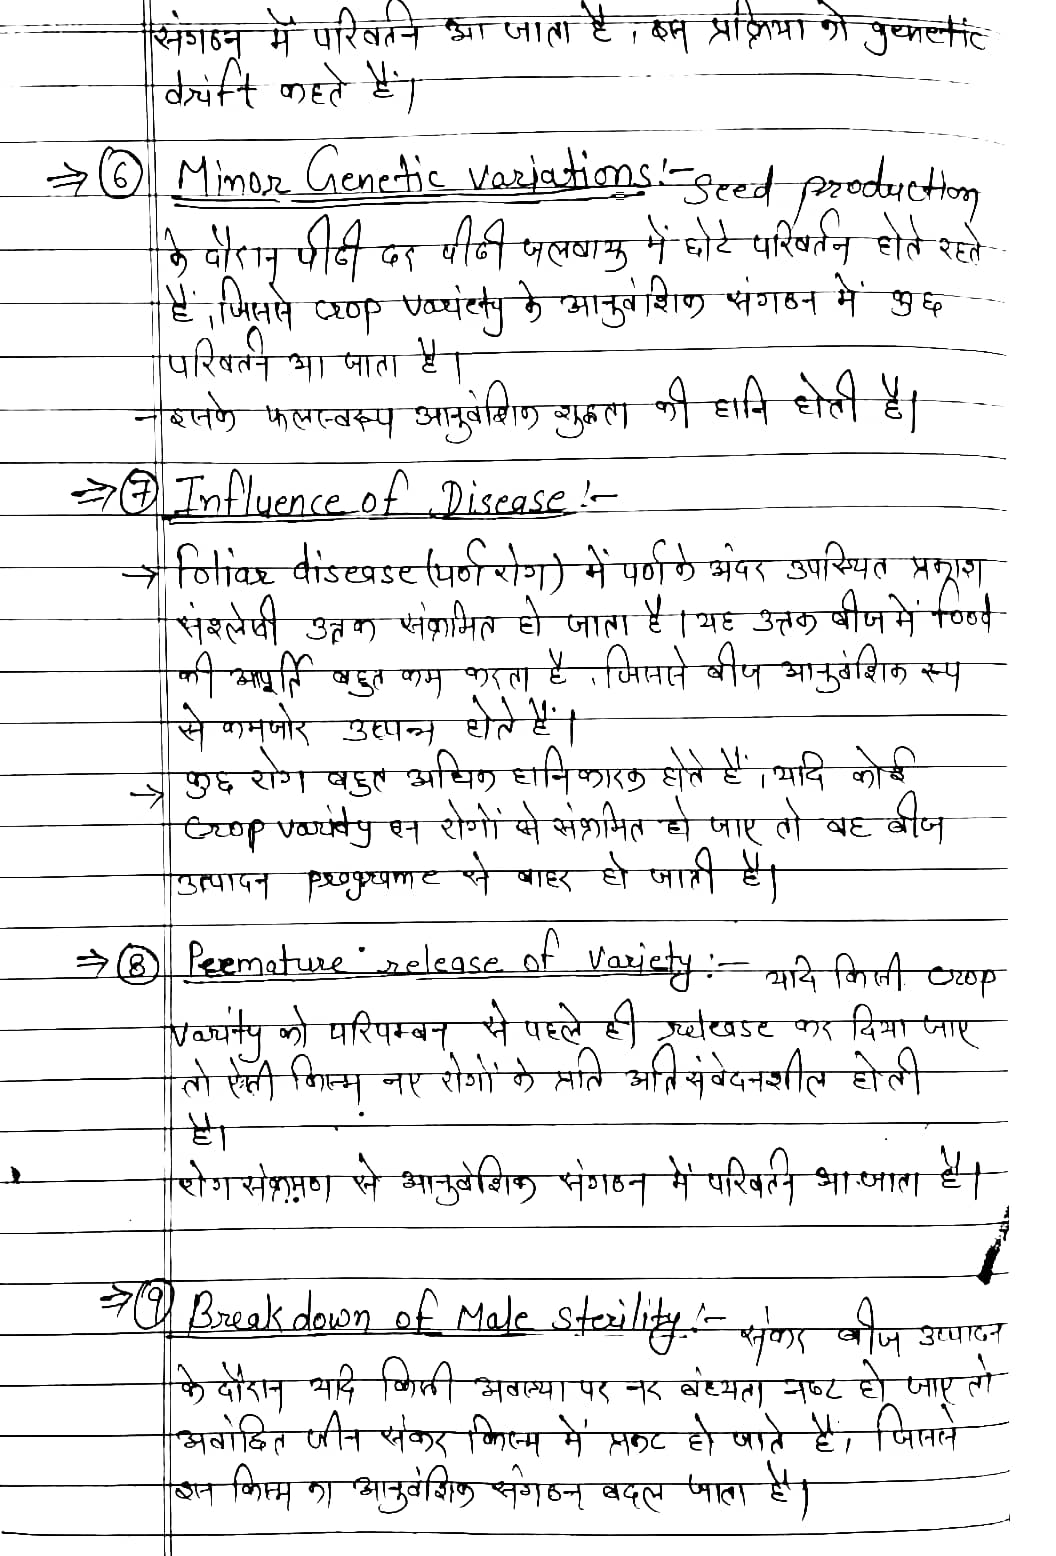 संगठन में परिवर्तन आ जाता है, इस प्रक्रिया को genetic
drift कहते हैं।
⇒ ⑥ Minor Genetic variations:- Seed production
के दौरान पीढी दर पीढी जलवायु में छोटे परिवर्तन होते रहते
हैं, जिससे crop variety के आनुवंशिक संगठन में कुछ
परिवर्तन आ जाता है।
→ इसके फलस्वरूप आनुवंशिक शुद्धता की हानि होती है।
⇒ ⑦ Influence of Disease:-
→ Foliar disease (पर्ण रोग) में पर्ण के अंदर उपस्थित प्रकाश
संश्लेषी उत्तक संक्रमित हो जाता है। यह उत्तक बीज में food
की आपूर्ति बहुत कम करता है, जिससे बीज आनुवंशिक रूप
से कमजोर उत्पन्न होते हैं।
→ कुछ रोग बहुत अधिक हानिकारक होते हैं, यदि कोई
crop varity इन रोगों से संक्रमित हो जाए तो वह बीज
उत्पादन programe से बाहर हो जाती है।
⇒ ⑧ Peemature release of variety:- यदि किसी crop
varity को परिपक्वन से पहले ही release कर दिया जाए
तो ऐसी किस्म नए रोगों के प्रति अतिसंवेदनशील होती
है।
रोग संक्रमण से आनुवंशिक संगठन में परिवर्तन आ जाता है।
⇒ ⑨ Breakdown of Male sterility:- संकर बीज उत्पादन
के दौरान यदि किसी अवस्था पर नर बंध्यता नष्ट हो जाए तो
अवांछित जीन संकर किस्म में प्रकट हो जाते हैं, जिससे
इस किस्म का आनुवंशिक संगठन बदल जाता है।